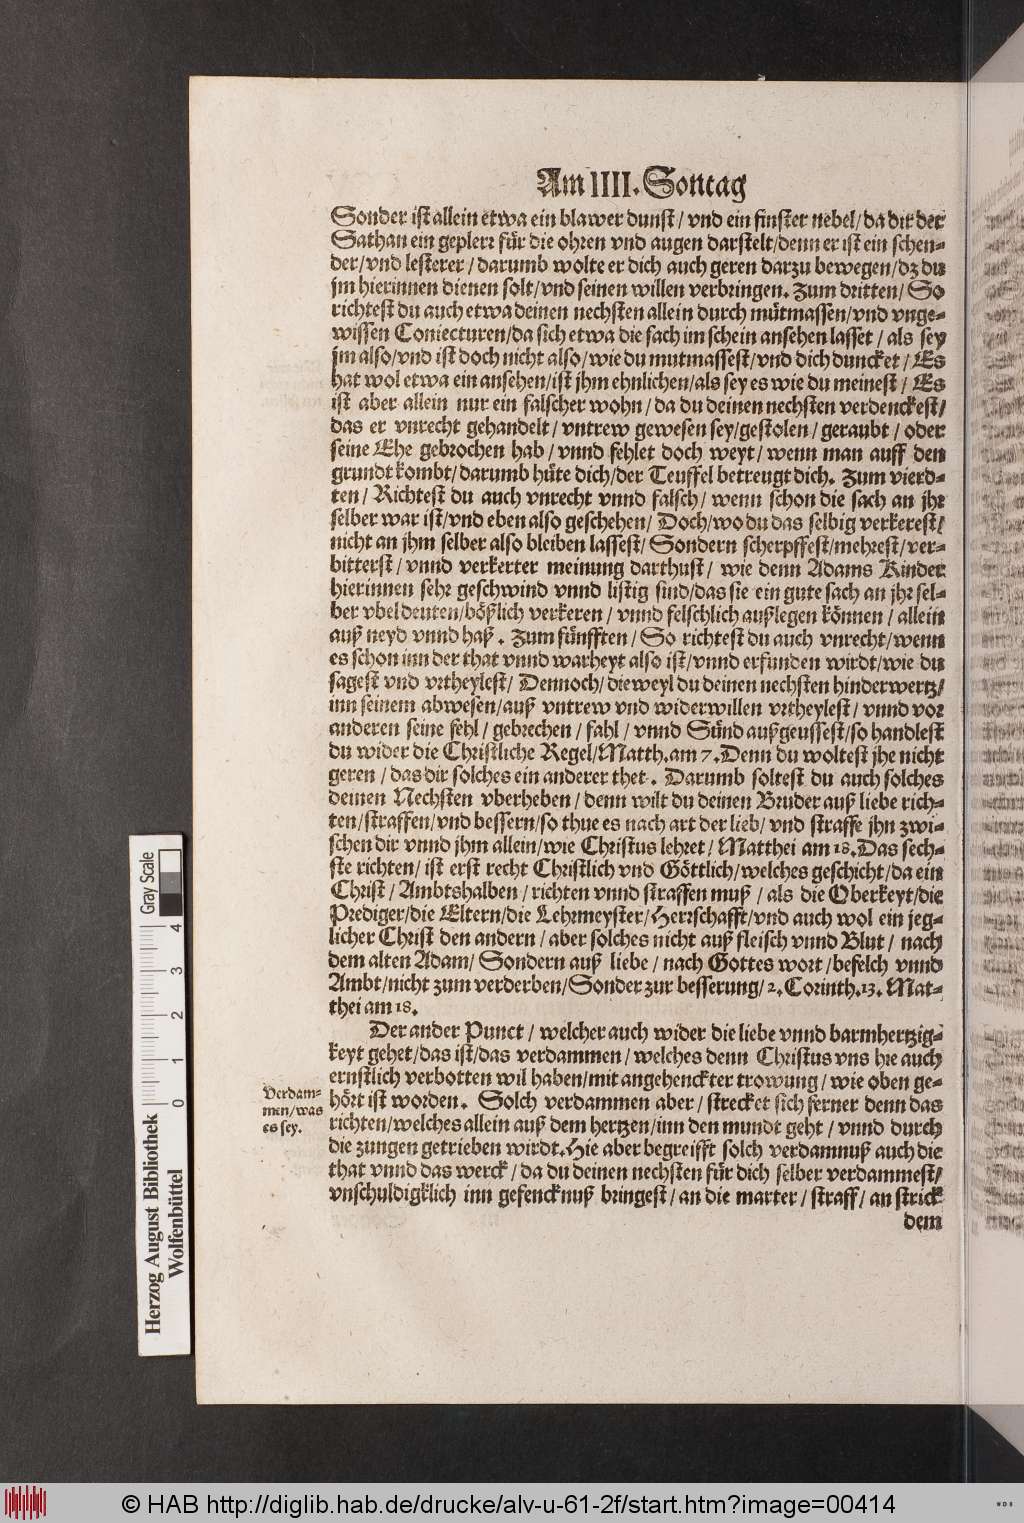 Am IIII. Sontag
Sonder ist allein etwa ein blawer dunst / vnd ein finster nebel / da dir der
Sathan ein geplerr für die ohren vnd augen darstelt / denn er ist ein schen-
der / vnd lesterer / darumb wolte er dich auch geren darzu bewegen / dz du
jm hierinnen dienen solt / vnd seinen willen verbringen. Zum dritten / So
richtest du auch etwa deinen nechsten allein durch mütmassen / vnd vnge-
wissen Coniecturen / da sich etwa die sach im schein ansehen lasset / als sey
jm also / vnd ist doch nicht also / wie du mutmassest / vnd dich duncket / Es
hat wol etwa ein ansehen / ist jhm ehnlichen / als sey es wie du meinest / Es
ist aber allein nur ein falscher wohn / da du deinen nechsten verdenckest /
das er vnrecht gehandelt / vntrew gewesen sey / gestolen / geraubt / oder
seine Ehe gebrochen hab / vnnd fehlet doch weyt / wenn man auff den
grundt kombt / darumb hüte dich / der Teuffel betreugt dich. Zum vierd-
ten / Richtest du auch vnrecht vnnd falsch / wenn schon die sach an jhr
selber war ist / vnd eben also geschehen / Doch / wo du das selbig verkerest /
nicht an jhm selber also bleiben lassest / Sondern scherpffest / mehrest / ver-
bitterst / vnnd verkerter meinung darthust / wie denn Adams Kinder
hierinnen sehr geschwind vnnd listig sind / das sie ein gute sach an jhr sel-
ber vbel deuten / bößlich verkeren / vnnd felschlich außlegen können / allein
auß neyd vnnd haß. Zum fünfften / So richtest du auch vnrecht / wenn
es schon inn der that vnnd warheyt also ist / vnnd erfunden wirdt / wie du
sagest vnd vrtheylest / Dennoch / dieweyl du deinen nechsten hinderwertz /
inn seinem abwesen / auß vntrew vnd widerwillen vrtheylest / vnnd vor
anderen seine fehl / gebrechen / fahl / vnnd Sünd außgeussest / so handlest
du wider die Christliche Regel / Matth. am 7. Denn du woltest jhe nicht
geren / das dir solches ein anderer thet. Darumb soltest du auch solches
deinen Nechsten vberheben / denn wilt du deinen Bruder auß liebe rich-
ten / straffen / vnd bessern / so thue es nach art der lieb / vnd straffe jhn zwi-
schen dir vnnd jhm allein / wie Christus lehret / Matthei am 18. Das sech-
ste richten / ist erst recht Christlich vnd Göttlich / welches geschicht / da ein
Christ / Ambtshalben / richten vnnd straffen muß / als die Oberkeyt / die
Prediger / die Eltern / die Lehrmeyster / Herrschafft / vnd auch wol ein jeg-
licher Christ den andern / aber solches nicht auß fleisch vnnd Blut / nach
dem alten Adam / Sondern auß liebe / nach Gottes wort / befelch vnnd
Ambt / nicht zum verderben / Sonder zur besserung / 2. Corinth. 13. Mat-
thei am 18.
Der ander Punct / welcher auch wider die liebe vnnd barmhertzig-
keyt gehet / das ist / das verdammen / welches denn Christus vns hie auch
ernstlich verbotten wil haben / mit angehenckter trowung / wie oben ge-
hört ist worden. Solch verdammen aber / strecket sich ferner denn das
richten / welches allein auß dem hertzen / inn den mundt geht / vnnd durch
die zungen getrieben wirdt. Hie aber begreifft solch verdamnuß auch die
that vnnd das werck / da du deinen nechsten für dich selber verdammest /
vnschuldigklich inn gefencknuß bringest / an die marter / straff / an strick
dem
Verdam-
men / was
es sey.
Herzog August Bibliothek
Wolfenbüttel
0 1 2 3 4
Gray Scale
© HAB http://diglib.hab.de/drucke/alv-u-61-2f/start.htm?image=00414